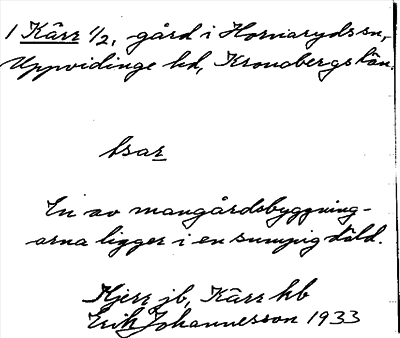 1 Kärr 1/2, gård i Hornaryds sn,
Uppvidinge hd, Kronobergs län.
En av mangårdsbyggning-
arna ligger i en sumpig däld.
Kjerr jb, Kärr hb
Erik Johannesson 1933